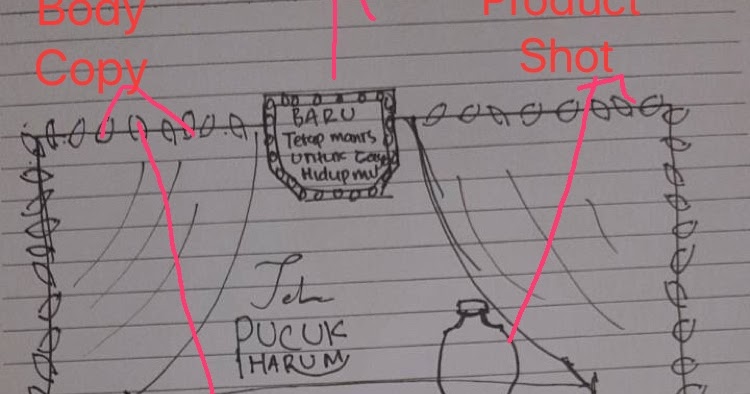 Body
Copy
Product
Shot
BARU
Tetap manis
untuk
Hidupmu
Teh
PUCUK
HARUM